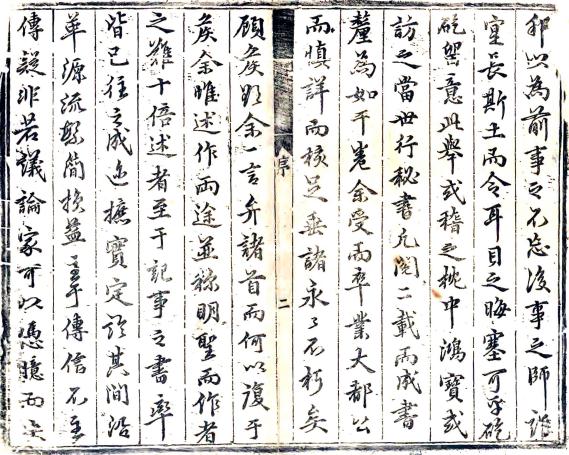 以為前事之不忘後事之師詎
宜長斯土而令耳目之晦塞可乎矻
矻留意此舉或稽之枕中鴻寶或
訪之當世行秘書凡閱二載而成書
釐為如干卷余受而卒業大都公
而慎詳而核足垂諸永永不朽矣
序
二
顧矦余一言弁諸首而何以復于
矦余惟述作兩途並稱明聖而作者
之難十倍述者至于記事之書率
皆已往之成迹摭實定其間沿
革源流繁簡損益主乎傳信不主
傳疑非若議論家可以憑臆而